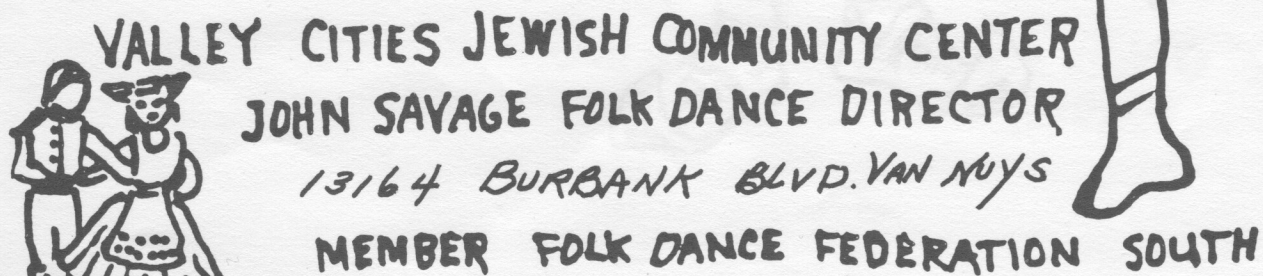 VALLEY CITIES JEWISH COMMUNITY CENTER
JOHN SAVAGE FOLK DANCE DIRECTOR
13164 BURBANK BLVD. VAN NUYS
MEMBER FOLK DANCE FEDERATION SOUTH